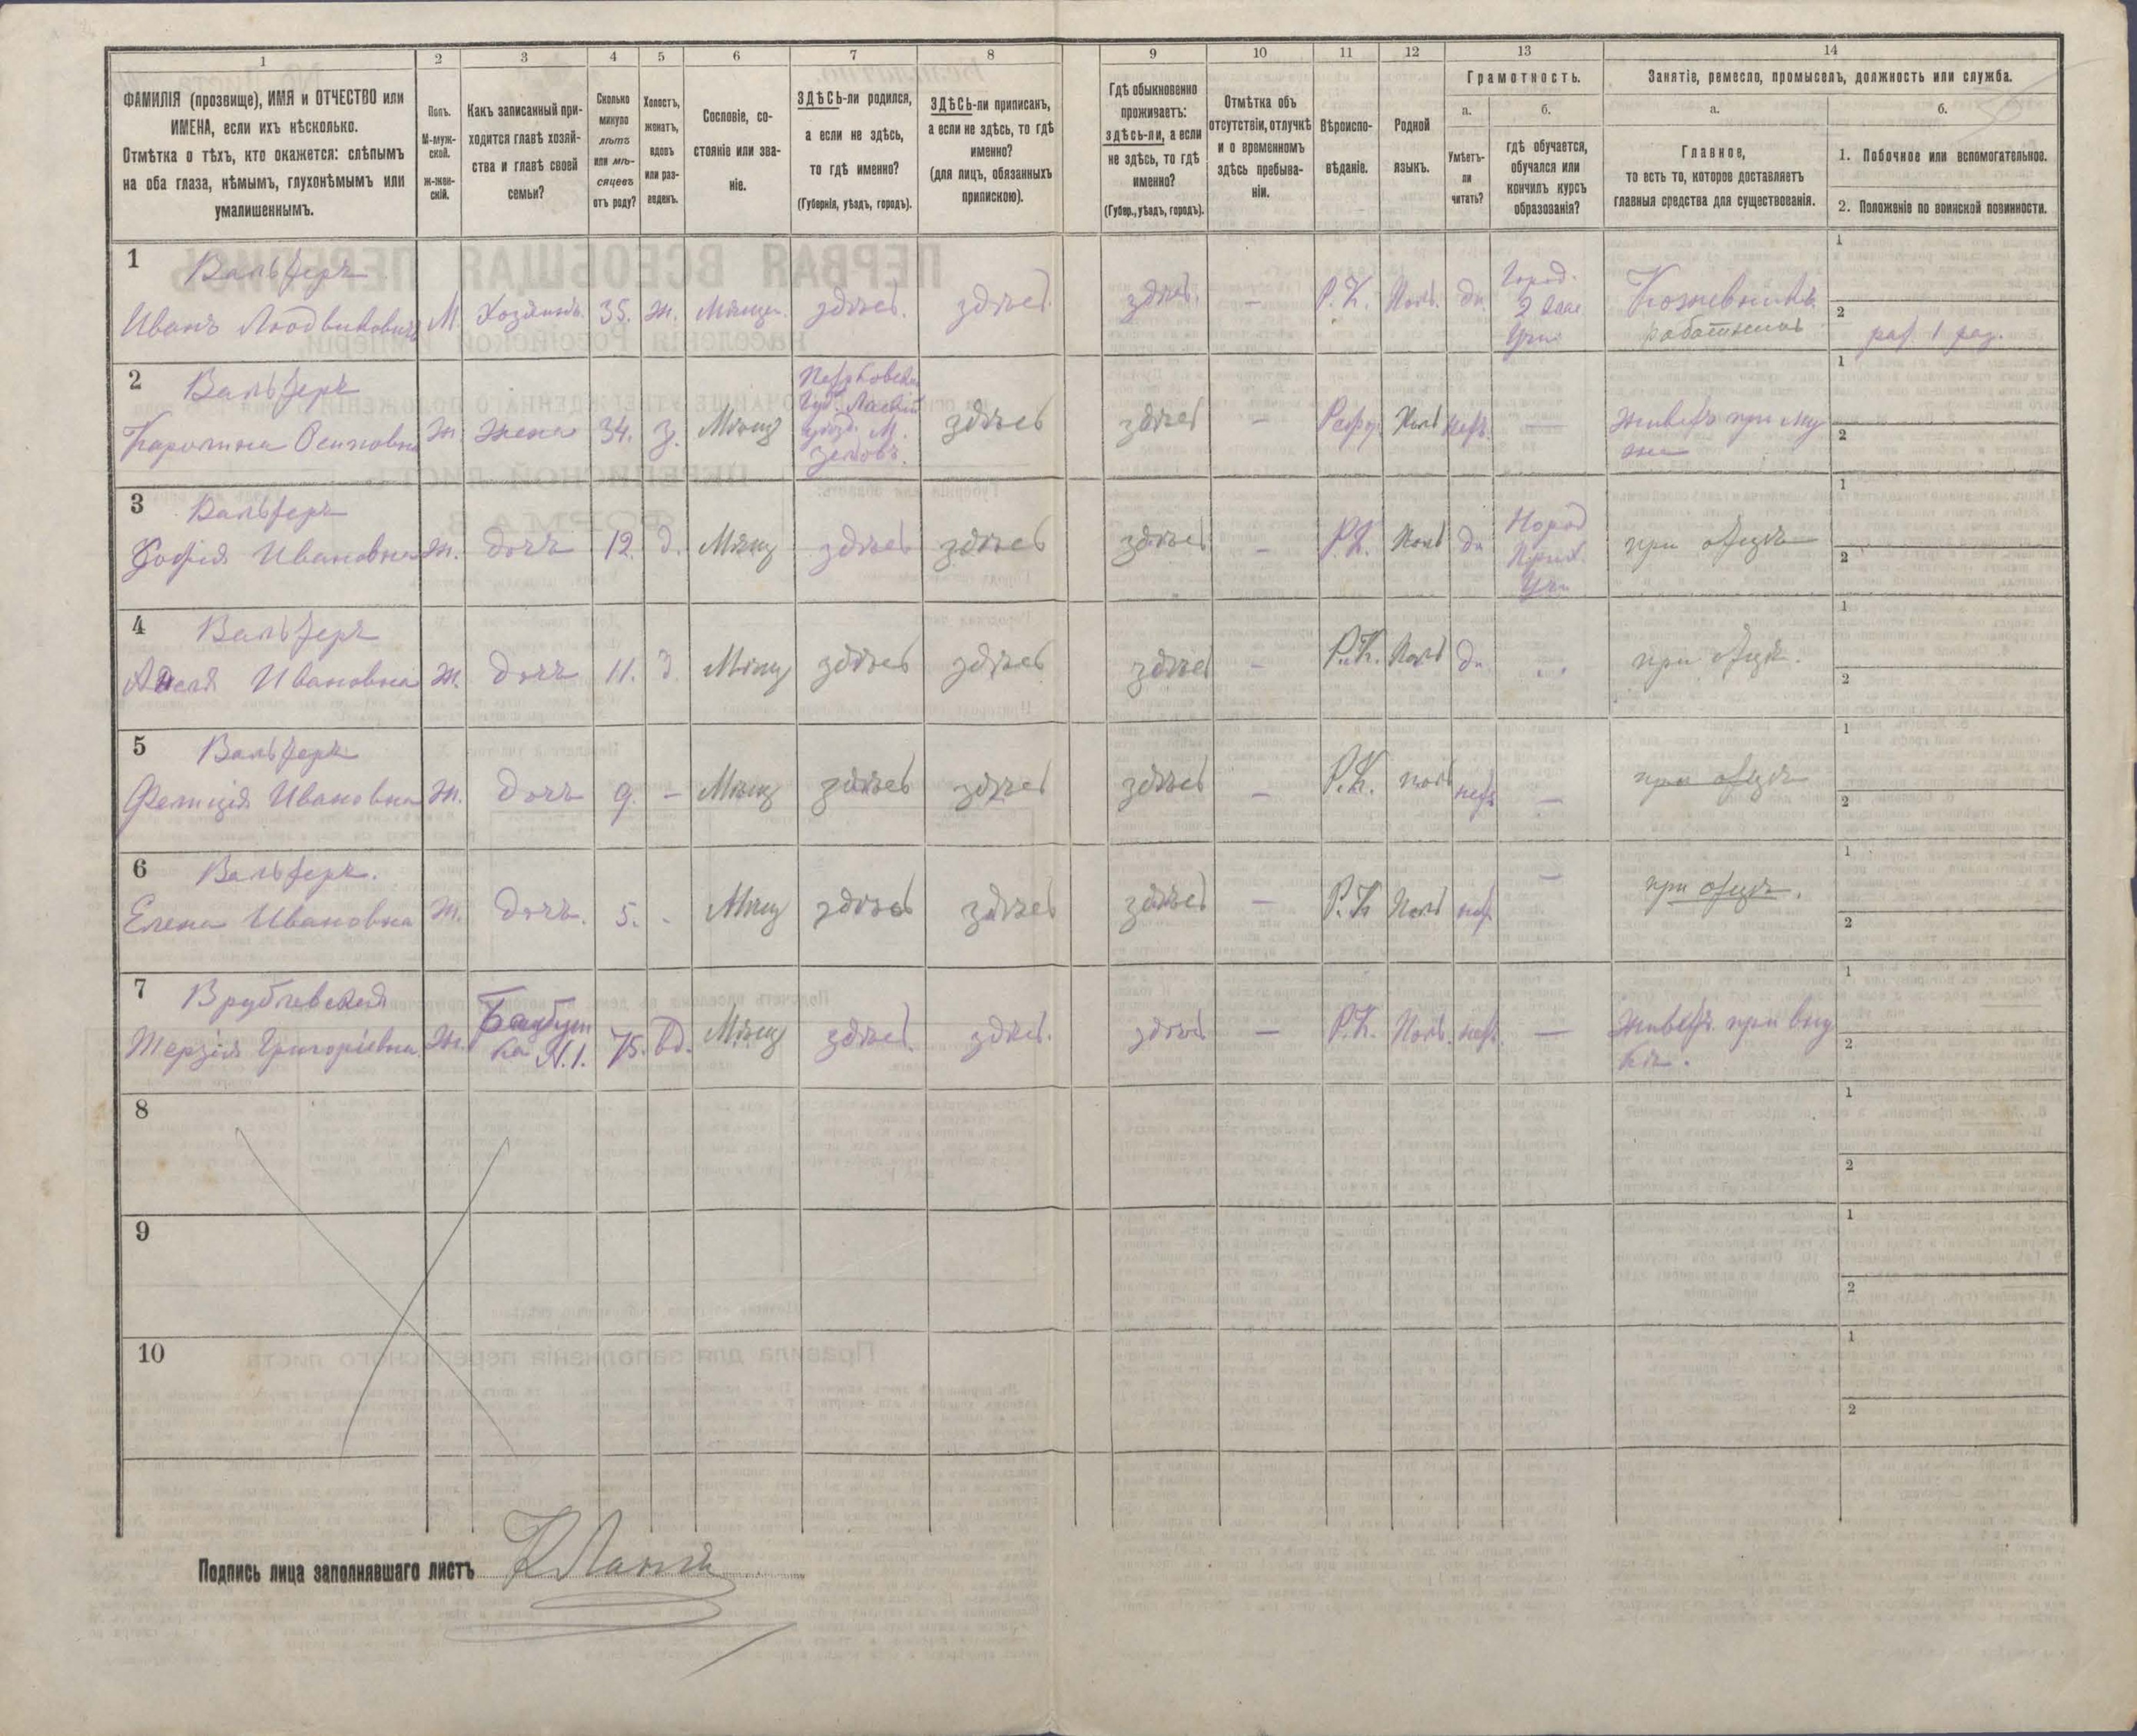 1 2 3 4 5 6 7 8 9 10 11 12 13 14
ФАМИЛІЯ (прозвище), ИМЯ и ОТЧЕСТВО или
ИМЕНА, если ихъ нѣсколько.
Отмѣтка о тѣхъ, кто окажется: слѣпымъ
на оба глаза, нѣмымъ, глухонѣмымъ или
умалишеннымъ.
Полъ.
М-муж-
ской.
ж-жен-
скій.
Какъ записанный при-
ходится главѣ хозяй-
ства и главѣ своей
семьи?
Сколько
минуло
лѣтъ
или мѣ-
сяцевъ
отъ роду?
Холостъ,
женатъ,
вдовъ
или раз-
веденъ.
Сословіе, со-
стояніе или зва-
ніе.
ЗДѢСЬ-ли родился,
а если не здѣсь,
то гдѣ именно?
(Губернія, уѣздъ, городъ).
ЗДѢСЬ-ли приписанъ,
а если не здѣсь, то гдѣ
именно?
(для лицъ, обязанныхъ
припискою).
Гдѣ обыкновенно
проживаетъ:
здѣсь-ли, а если
не здѣсь, то гдѣ
именно?
(Губер., уѣздъ, городъ).
Отмѣтка объ
отсутствіи, отлучкѣ
и о временномъ
здѣсь пребыва-
ніи.
Вѣроиспо-
вѣданіе.
Родной
языкъ.
Грамотность.
а. б.
Умѣетъ-
ли
читать?
гдѣ обучается,
обучался или
кончилъ курсъ
образованія?
Занятіе, ремесло, промыселъ, должность или служба.
а. б.
Главное,
то есть то, которое доставляетъ
главныя средства для существованія.
1. Побочное или вспомогательное.
2. Положеніе по воинской повинности.
1 Вальтеръ
Иванъ Людвиковичъ М. Хозяинъ. 35. ж. Мѣщан. здѣсь. здѣсь. здѣсь. — Р.К. Поль. да
Город.
2 клас
Учи
Кожевникъ
работникъ
1
2
рат 1 раз.
2 Вальтеръ
Каролина Осиповна ж жена 34. з. Мѣщ
Петрковская
Губ. Ласкій
уѣзд. М.
Зеловъ.
здѣсь здѣсь — Рефор. Поль нетъ. —
Живетъ при му
жѣ
1
2
3 Вальтеръ
Софія Ивановна ж. дочь 12. д. Мѣщ здѣсь здѣсь здѣсь — Р.К. Поль да
Город
Учи
при отцѣ
1
2
4 Вальтеръ
Анеля Ивановна ж. дочь 11. д. Мѣщ здѣсь здѣсь здѣсь — Р.К. Поль да . . при отцѣ.
1
2
5 Вальтеръ
Фелиція Ивановна ж. дочь 9. — Мѣщ здѣсь здѣсь здѣсь — Р.К. поль нетъ — при отцѣ
1
2
6 Вальтеръ.
Елена Ивановна ж. дочь. 5. - Мѣщ здѣсь здѣсь здѣсь — Р.К Поль нет. — при отцѣ.
1
2
7 Врублевская
Терзія Григоріевна ж.
Бабуш
ка N.1.
75. вд. Мѣщ здѣсь. здѣсь. здѣсь — Р.К. Поль. нетъ. —
Живетъ при вну
кѣ.
1
2
8
1
2
9
1
2
10
1
2
Подпись лица заполнявшаго листъ К Ланге